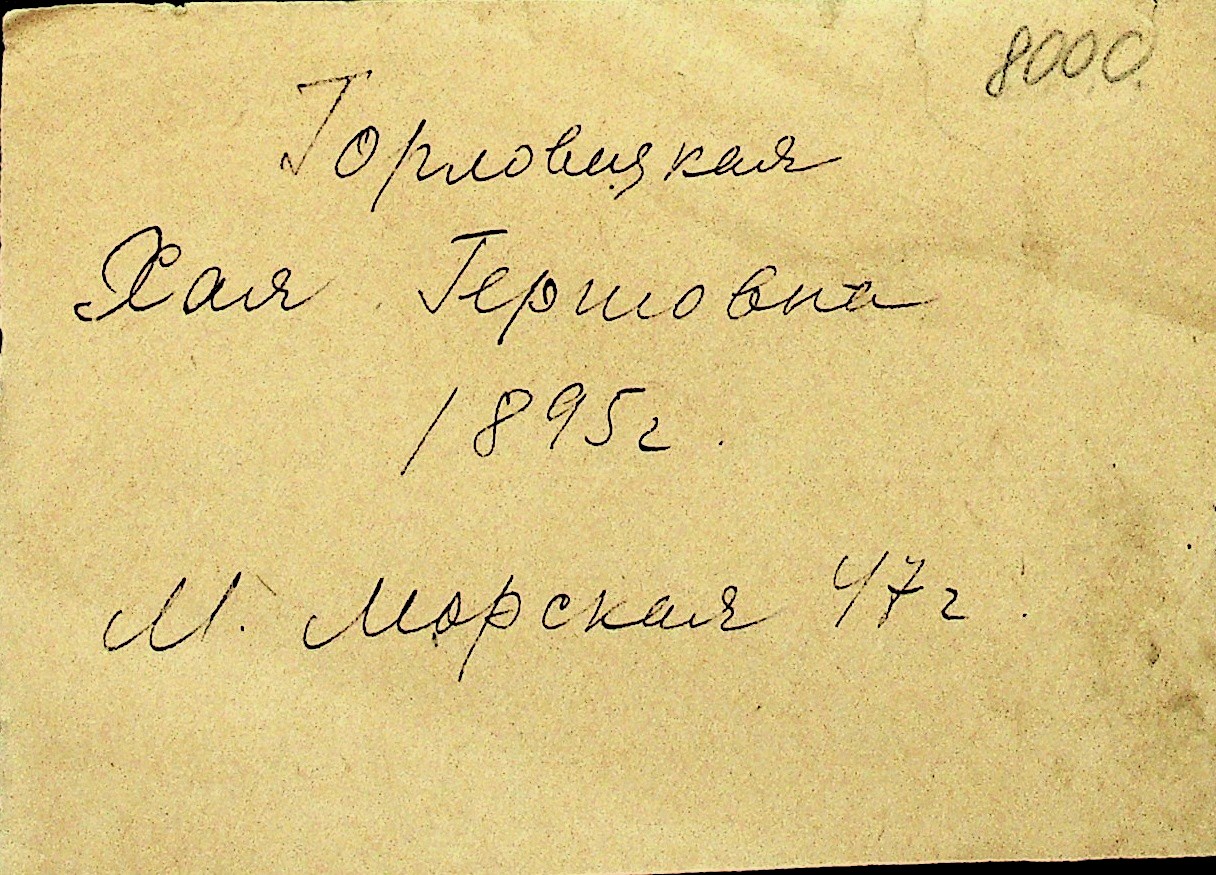 800 С.
Горловицкая
Хая Гершовна
1895г.
М. Морская 47г.